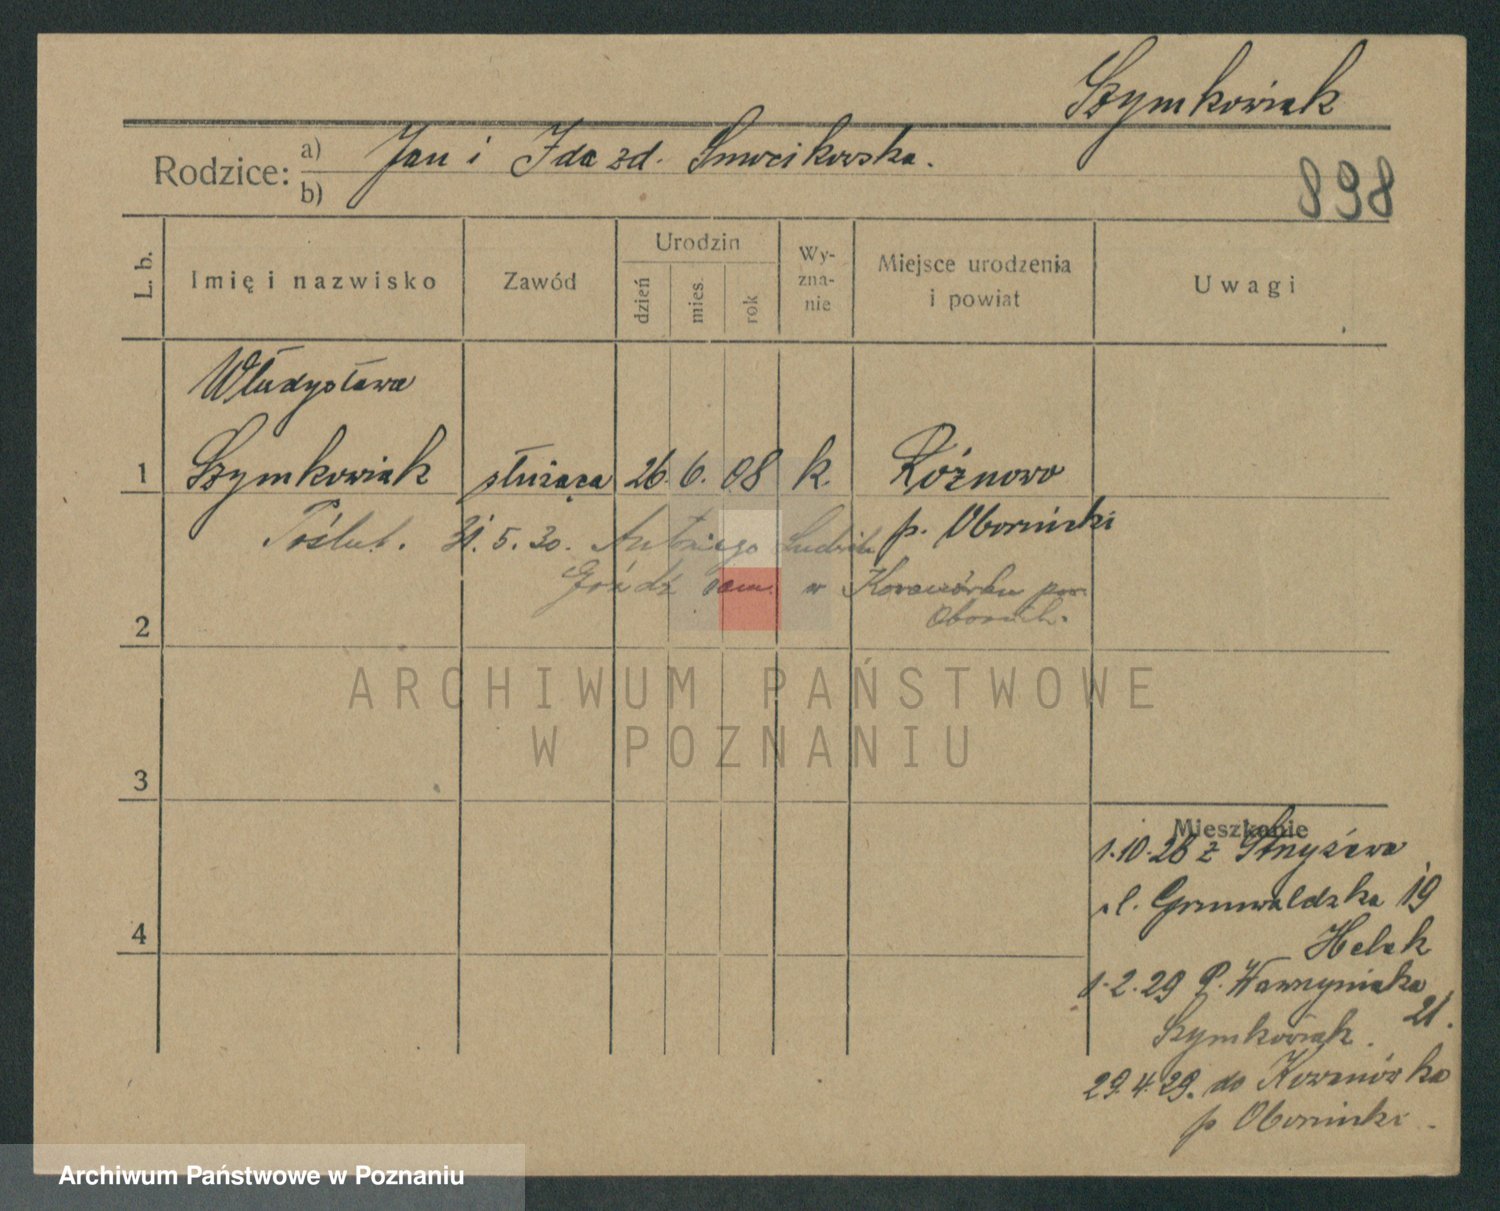 Szymkowiak
Rodzice: a) Jan i Ida zd. Smocikowska.
b)
898
L. b. Imię i nazwisko Zawód Urodzin dzień mies. rok Wy-zna-nie Miejsce urodzenia i powiat Uwagi
Władysława
1 Szymkowiak służąca 26. 6. 08 k. Różnowo
p. Obornicki
Poślub. 31. 5. 30. Antoniego
Góźdź zam. w pow.
Obornik.
2
3
4
Mieszkanie
1.10.28 z
ul. Grunwaldzka 19
Helak
1.2.29 P. Wawrzyniaka
21.
Szymkowiak.
29.4.29. do Kowanówka
p Obornicki.
ARCHIWUM PAŃSTWOWE
W POZNANIU
Archiwum Państwowe w Poznaniu